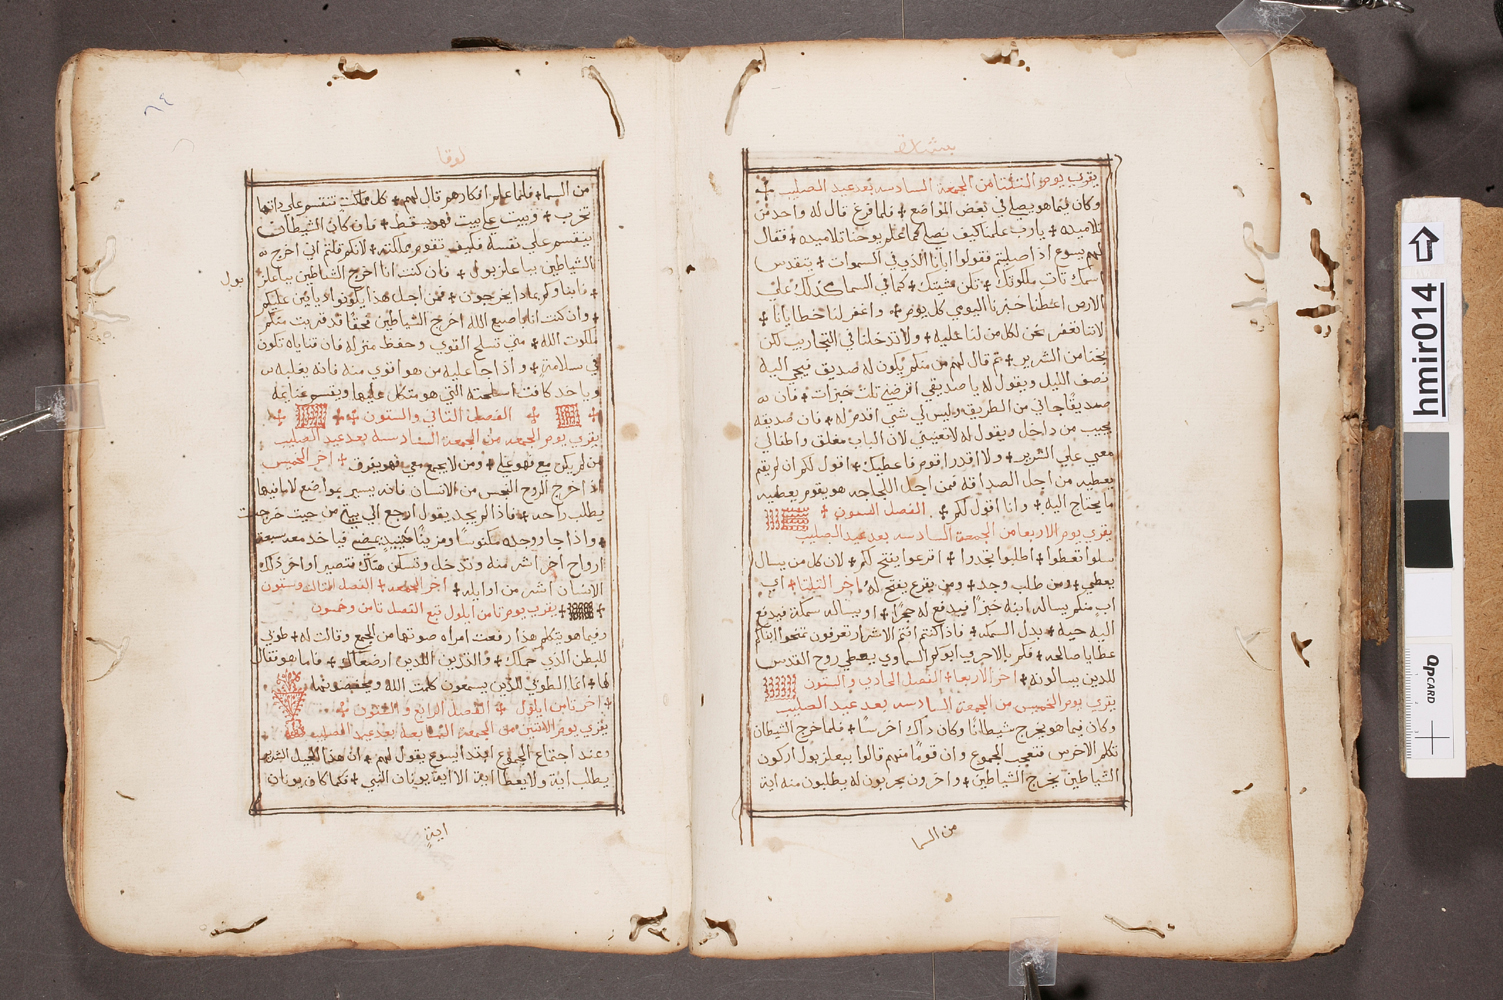 بشارة
يقري يوم الثلثا من الجمعة السادسه بعد عيد الصليب
وكان فيما هو يصلي في بعض المواضع + فلما فرغ قال له واحد من
تلاميده + يارب علمنا كيف نصلي كما علم يوحنا تلاميده + فقال
لهم يسوع اذ اصليتم فقولوا ابانا الذي في السموات + يتقدس
اسمك تات ملكوتك + تكن مشيتك + كما في السما كذلك علي
الارض اعطنا خبزنا اليومي كل يوم + واغفر لنا خطايانا +
لاننا نغفر نحن لكل من لنا عليه + ولا تدخلنا في التجاريب لكن
نجنا من الشرير + ثم قال لهم من منكم يكون له صديق فيجي اليه
نصف الليل ويقول له يا صديقي اقرضني تلت خبزات + فان
صديقا جاني من الطريق وليس لي شي اقدم له + فان صديقه
يجيب من داخل ويقول له لا تعبني لان الباب مغلق واطفالي
معي علي السرير + ولا اقدر اقوم فاعطيك + اقول لكم ان لم يقم
يعطيه من اجل الصداقه فمن اجل اللجاجه هو يقوم يعطيه
ما يحتاج اليه + وانا اقول لكم + الفصل الستون +
يقري يوم الاربعا من الجمعة السادسه بعد عيد الصليب
سلوا تعطوا + اطلبوا تجدوا + اقرعوا يفتح لكم + لان كل من يسال
يعطي + ومن طلب وجد + ومن يقرع يفتح له اخر الثلثا + اي
اب منكم يساله ابنه خبزا فيدفع له حجرا + او يساله سمكة فيدفع
اليه حيه + بدل السمكه + فاذ اكنتم انتم الاشرار تعرفون تمنحوا ابناكم
عطايا صالحه + فكم بالاحري ابوكم السماوي يعطي روح القدس
للدين يسالونه + اخر الاربعا + الفصل الحادي والستون
يقري يوم الخميس من الجمعة السادسه بعد عيد الصليب
وكان فيما هو يخرج شيطانا وكان داك اخرسا + فلما خرج الشيطان
تكلم الاخرس فتعجب الجموع وان قوما منهم قالوا ببعلزبول اركون
الشياطين يخرج الشياطين + واخرون يجربون له يطلبون منه اية
من السما
٦٤
لوقا
من السما + فلما علم افكارهم قال لهم + كل مملكت تنقسم علي داتها
تخرب + وبيت علي بيت فهو يسقط + فان كان الشيطان
ينقسم علي نفسه فكيف تقوم مملكته + لانكم قلتم اني اخرج
الشياطين ببا علزبول + فان كنت انا اخرج الشياطين بباعلز
بول
+ فابناوكم بماذا يخرجون + فمن اجل هذا يكونوا دياينين عليكم
+ وان كنت انا باصبع الله اخرج الشياطين فحقا قد قربت منكم
ملكوت الله + متي تسلح القوي وحفظ منزله فان قناياه تكون
في سلامة + واذا جا عليه من هو اقوي منه فانه يغلبه
وياخد كافت اسلحته التي هو متكل عليها ويقسم غنايمه
+ الفصل الثاني والستون +
يقري يوم الجمعه من الجمعة السادسه بعد عيد الصليب
من لم يكن مع فهو علي + ومن لا يجمع معي فهو يفرق + اخر الخميس
اذ اخرج الروح النجس من الانسان فانه يسير بمواضع لا ما فيها
يطلب راحه + فاذا لم يجد يقول ارجع الي بيتي من حيت خرجت
+ واذا جا ووجده مكنوسا ومزينا يمضي فياخد معه سبعة
ارواح اخر اشر منه وتدخل وتسكن هناك فتصير اواخر ذلك
الانسان اشر من اوايله + اخر الجمعه + الفصل الثالت وستون
+ يقري يوم تامن ايلول تبع الفصل تامن وخمسون
وفيما هو يتكلم هذا رفعت امراه صوتها من الجمع وقالت له + طوبي
للبطن الذي حملك + والثديين اللذين ارضعاك + فاما هو فقال
لها + انما الطوبي للذين يسمعون كلمت الله ويحفضونها +
+ اخر تامن ايلول + الفصل الرابع والستون +
يقري يوم الاثنين من الجمعة السابعة بعد عيد الصليب
وعند اجتماع الجموع ابتدا يسوع يقول لهم + ان هذا الجيل الشرير
يطلب اية ولا يعطا اية الا اية يونان النبي + فكما كان يونان
اية
hmir014
QPCARD